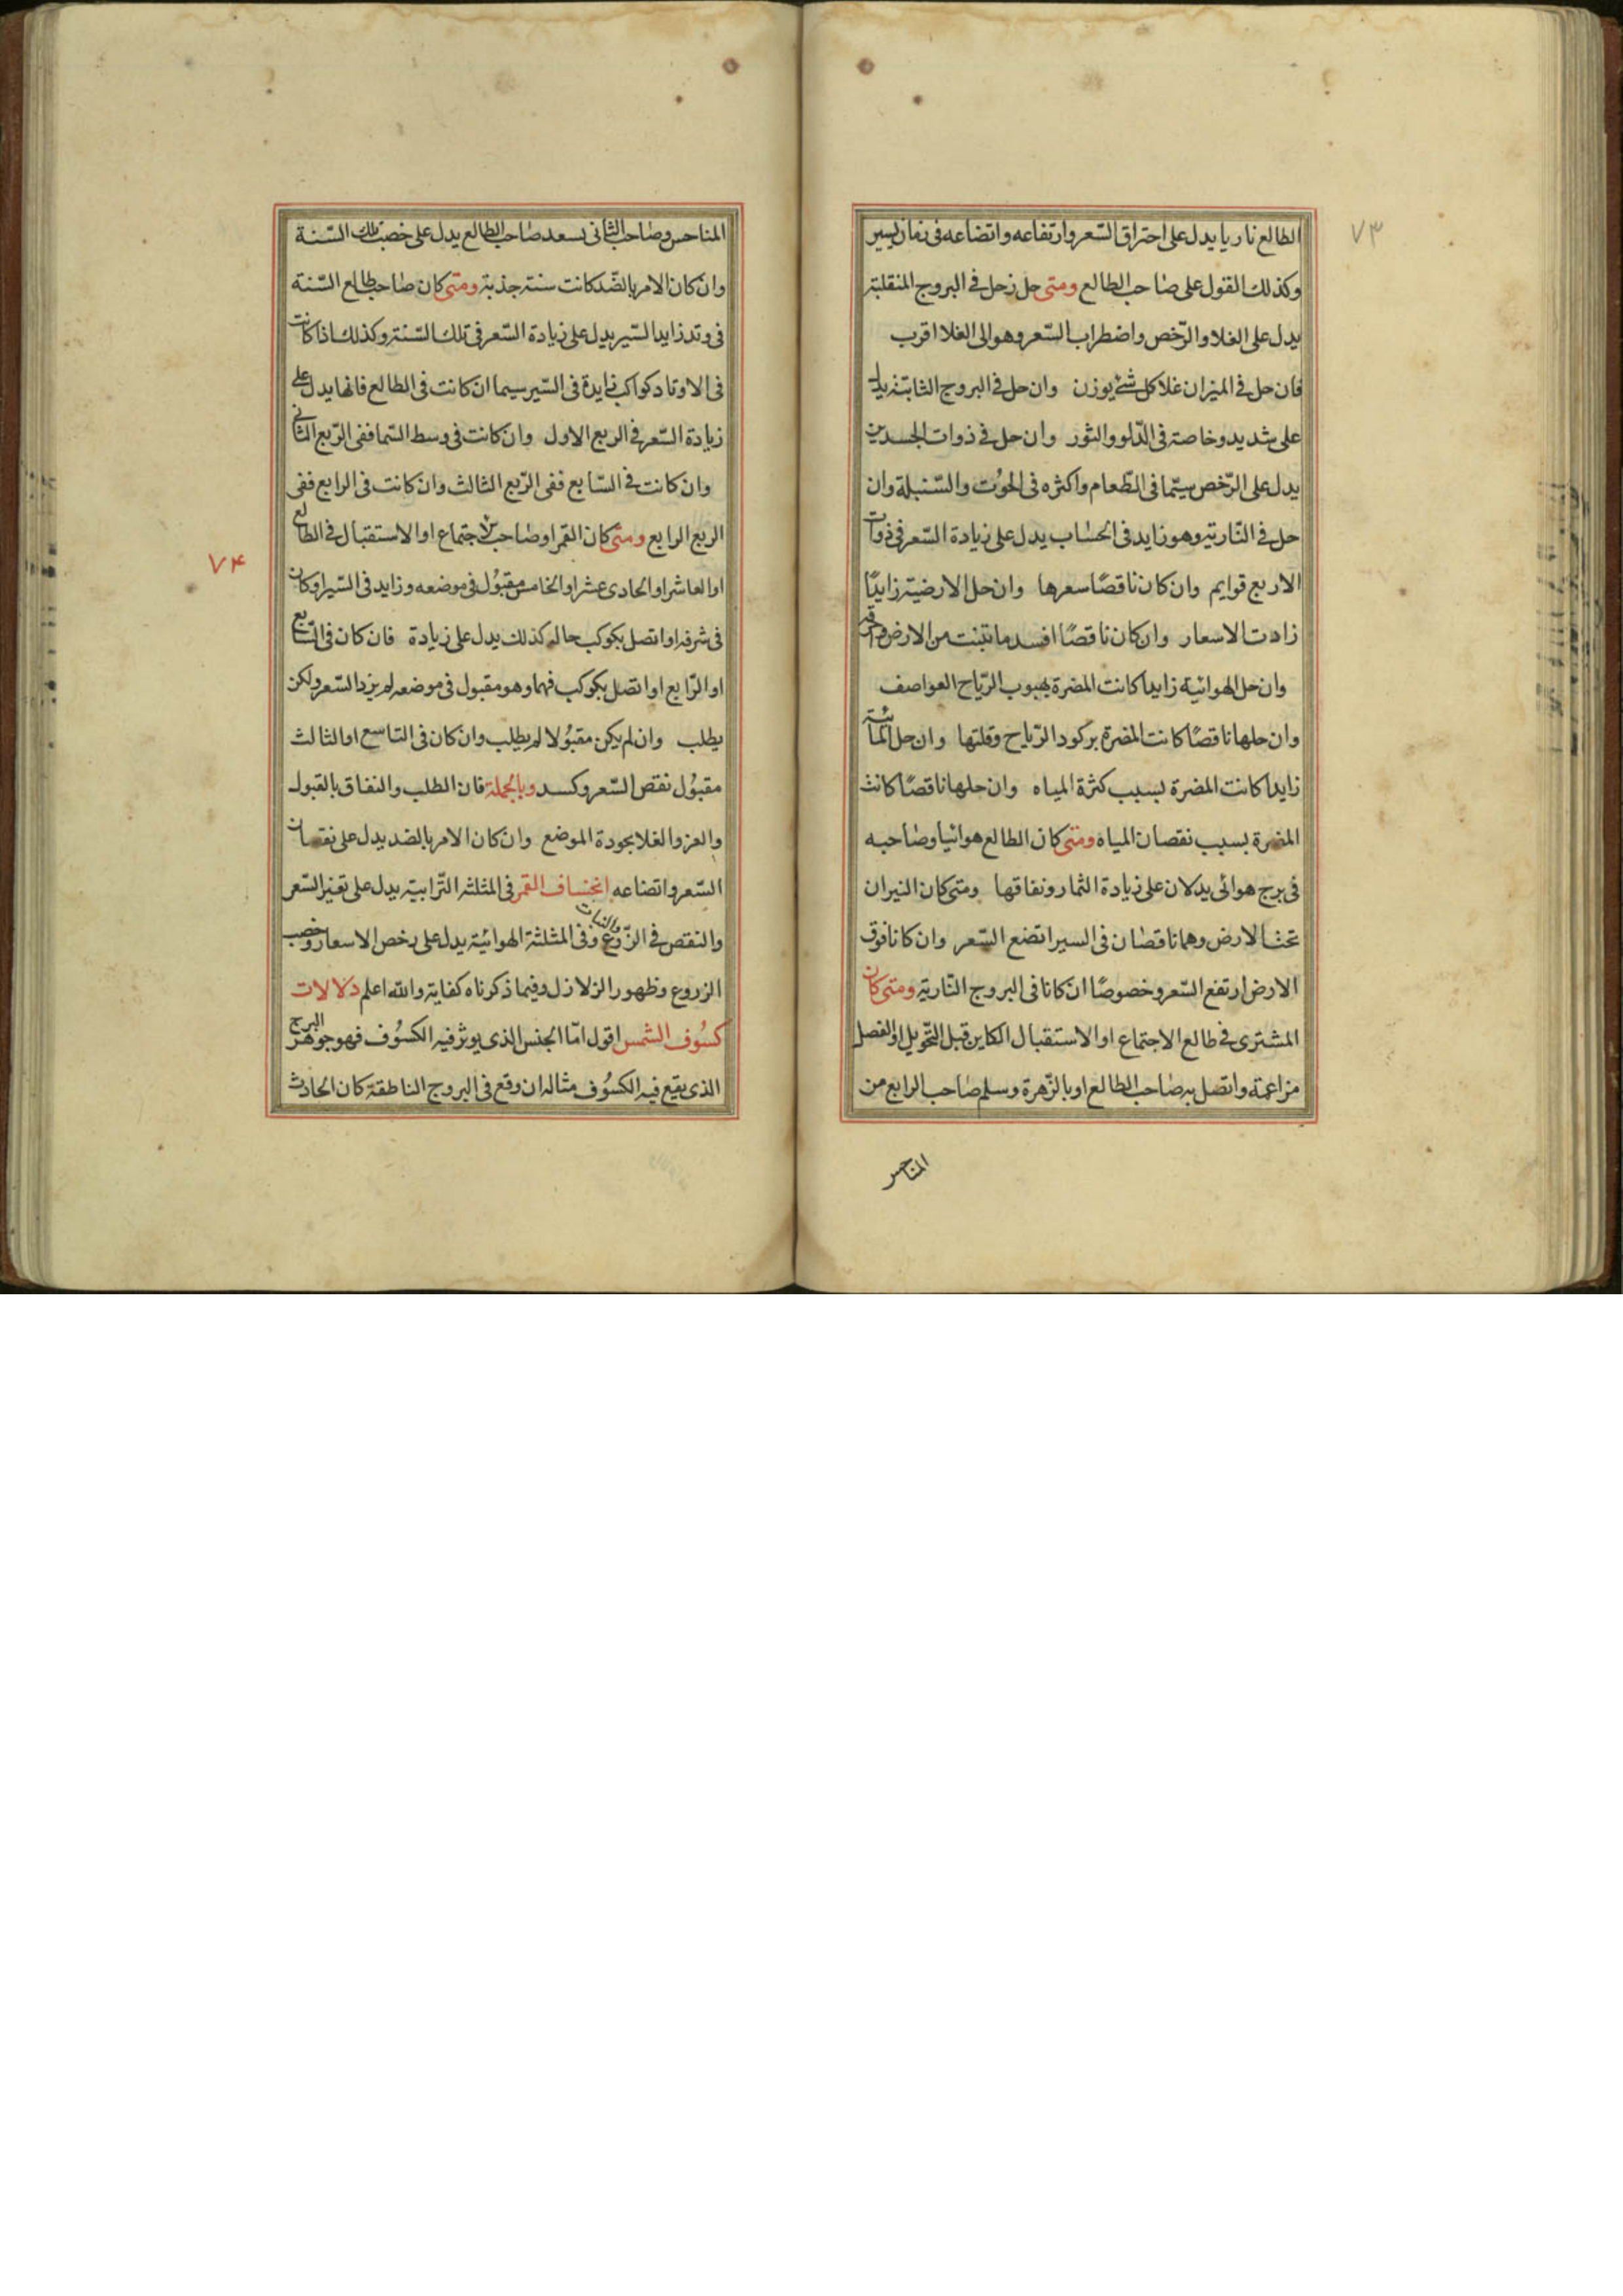 ٧٣
الطالع ناريا يدل على احتراق السّعر وارتفاعه واتضاعه فى زمان يسير
وكذلك القول على صاحب الطالع ومتى حل زحل فى البروج المنقلبة
يدل على الغلا والرّخص واضطراب السّعر وهو الى الغلا اقرب
فان حل فى الميزان غلا كل شئ يوزن وان حل فى البروج الثابتة يدل
على شديد وخاصة فى الدّلو والثور وان حل فى ذوات الجسدين
يدل على الرّخص سيّما فى الطّعام واكثره فى الحوُت والسّنبلة وان
حل فى النّارية وهو زايد فى الحسَاب يدل على زيادة السّعر فى ذوات
الاربع قوايم وان كان ناقصًا سعرها وان حل الارضية زايدًا
زادت الاسعار وان كان ناقصًا افسد ما تنبت من الارض
وان حل الهوائية زايدا كانت المضرة بهبوب الرّياح العواصف
وان حلها ناقصًا كانت المضرة بركود الرّياح وقلتها وان حل المائية
زايدا كانت المضرة بسبب كثرة المياه وان حلها ناقصًا كانت
المضرة بسبب نقصان المياه ومتى كان الطالع هوائيا وصَاحبه
فى برج هوائى يدلان على زيادة الثمار ونفاقها ومتى كان النيران
تحت الارض وهما ناقصَان فى السير اتضع السّعر وان كانا فوق
الارض ارتفع السّعر وخصوصًا ان كانا فى البروج النّارية ومتى كان
المشترى فى طالع الاجتماع او الاستقبال الكاين قبل التّحويل او الفصل
مزاعمة واتصل به صَاحب الطالع او بالزّهرة وسلم صَاحب الرابع من
المناحس
المناحس وصَاحب الثانى يسعد صَاحب الطالع يدل على خصب تلك السّنة
وان كان الامر بالضّد كانت سنة جذبة ومتى كان صَاحب طالع السّنة
فى وتد زايد السّير يدل على زيادة السّعر فى تلك السّنة وكذلك اذا كانت
فى الاوتاد كواكب زايدة فى السّير سيما ان كانت فى الطالع فانها يدل على
زيادة السّعر فى الربع الاول وان كانت فى وسط السّما ففى الرّبع الثانى
وان كانت فى السّابع ففى الرّبع الثالث وان كانت فى الرابع ففى
الربع الرابع ومتى كان القمر او صَاحب الاجتماع او الاستقبال فى الطالع
٧۴
او العاشر او الحادى عشر او الخامس مقبُول فى موضعه وزايد فى السّير او كان
فى شرفه او اتصل بكوكب حاله كذلك يدل على زيادة فان كان فى السّابع
او الرّابع او اتصل بكوكب فيهما وهو مقبول فى موضعه لم يزد السّعر ولكن
يطلب وان لم يكن مقبُولا لم يطلب وان كان فى التاسع او الثالث
مقبُول نقص السّعر وكسد وبالجملة فان الطلب والنفاق بالقبول
والعز والغلا بجودة الموضع وان كان الامر بالضد يدل على نقصان
السّعر واتضاعه انخساف القمر فى المثلثه التّرابية يدل على تغير السّعر
والنقص فى الزّروع والنبات وفى المثلثة الهوائيّة يدل على رخص الاسعار وخصب
الزروع وظهور الزلازل وفيما ذكرناه كفاية والله اعلم دلالات
كسُوف الشمس اقول امّا الجنس الذى يوثر فيه الكسُوف فهو جوهر البرج
الذى يقع فيه الكسُوف مثاله ان وقع فى البروج الناطقة كان الحادث